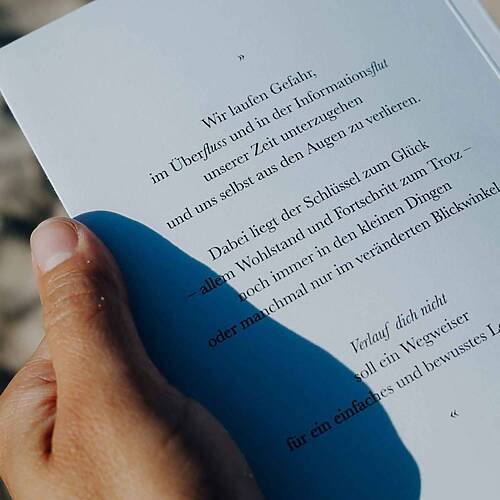 »
Wir laufen Gefahr,
im Überfluss und in der Informationsflut
unserer Zeit unterzugehen
und uns selbst aus den Augen zu verlieren.
Dabei liegt der Schlüssel zum Glück
– allem Wohlstand und Fortschritt zum Trotz –
noch immer in den kleinen Dingen
oder manchmal nur im veränderten Blickwinkel
Verlauf dich nicht
soll ein Wegweiser
für ein einfaches und bewusstes
«